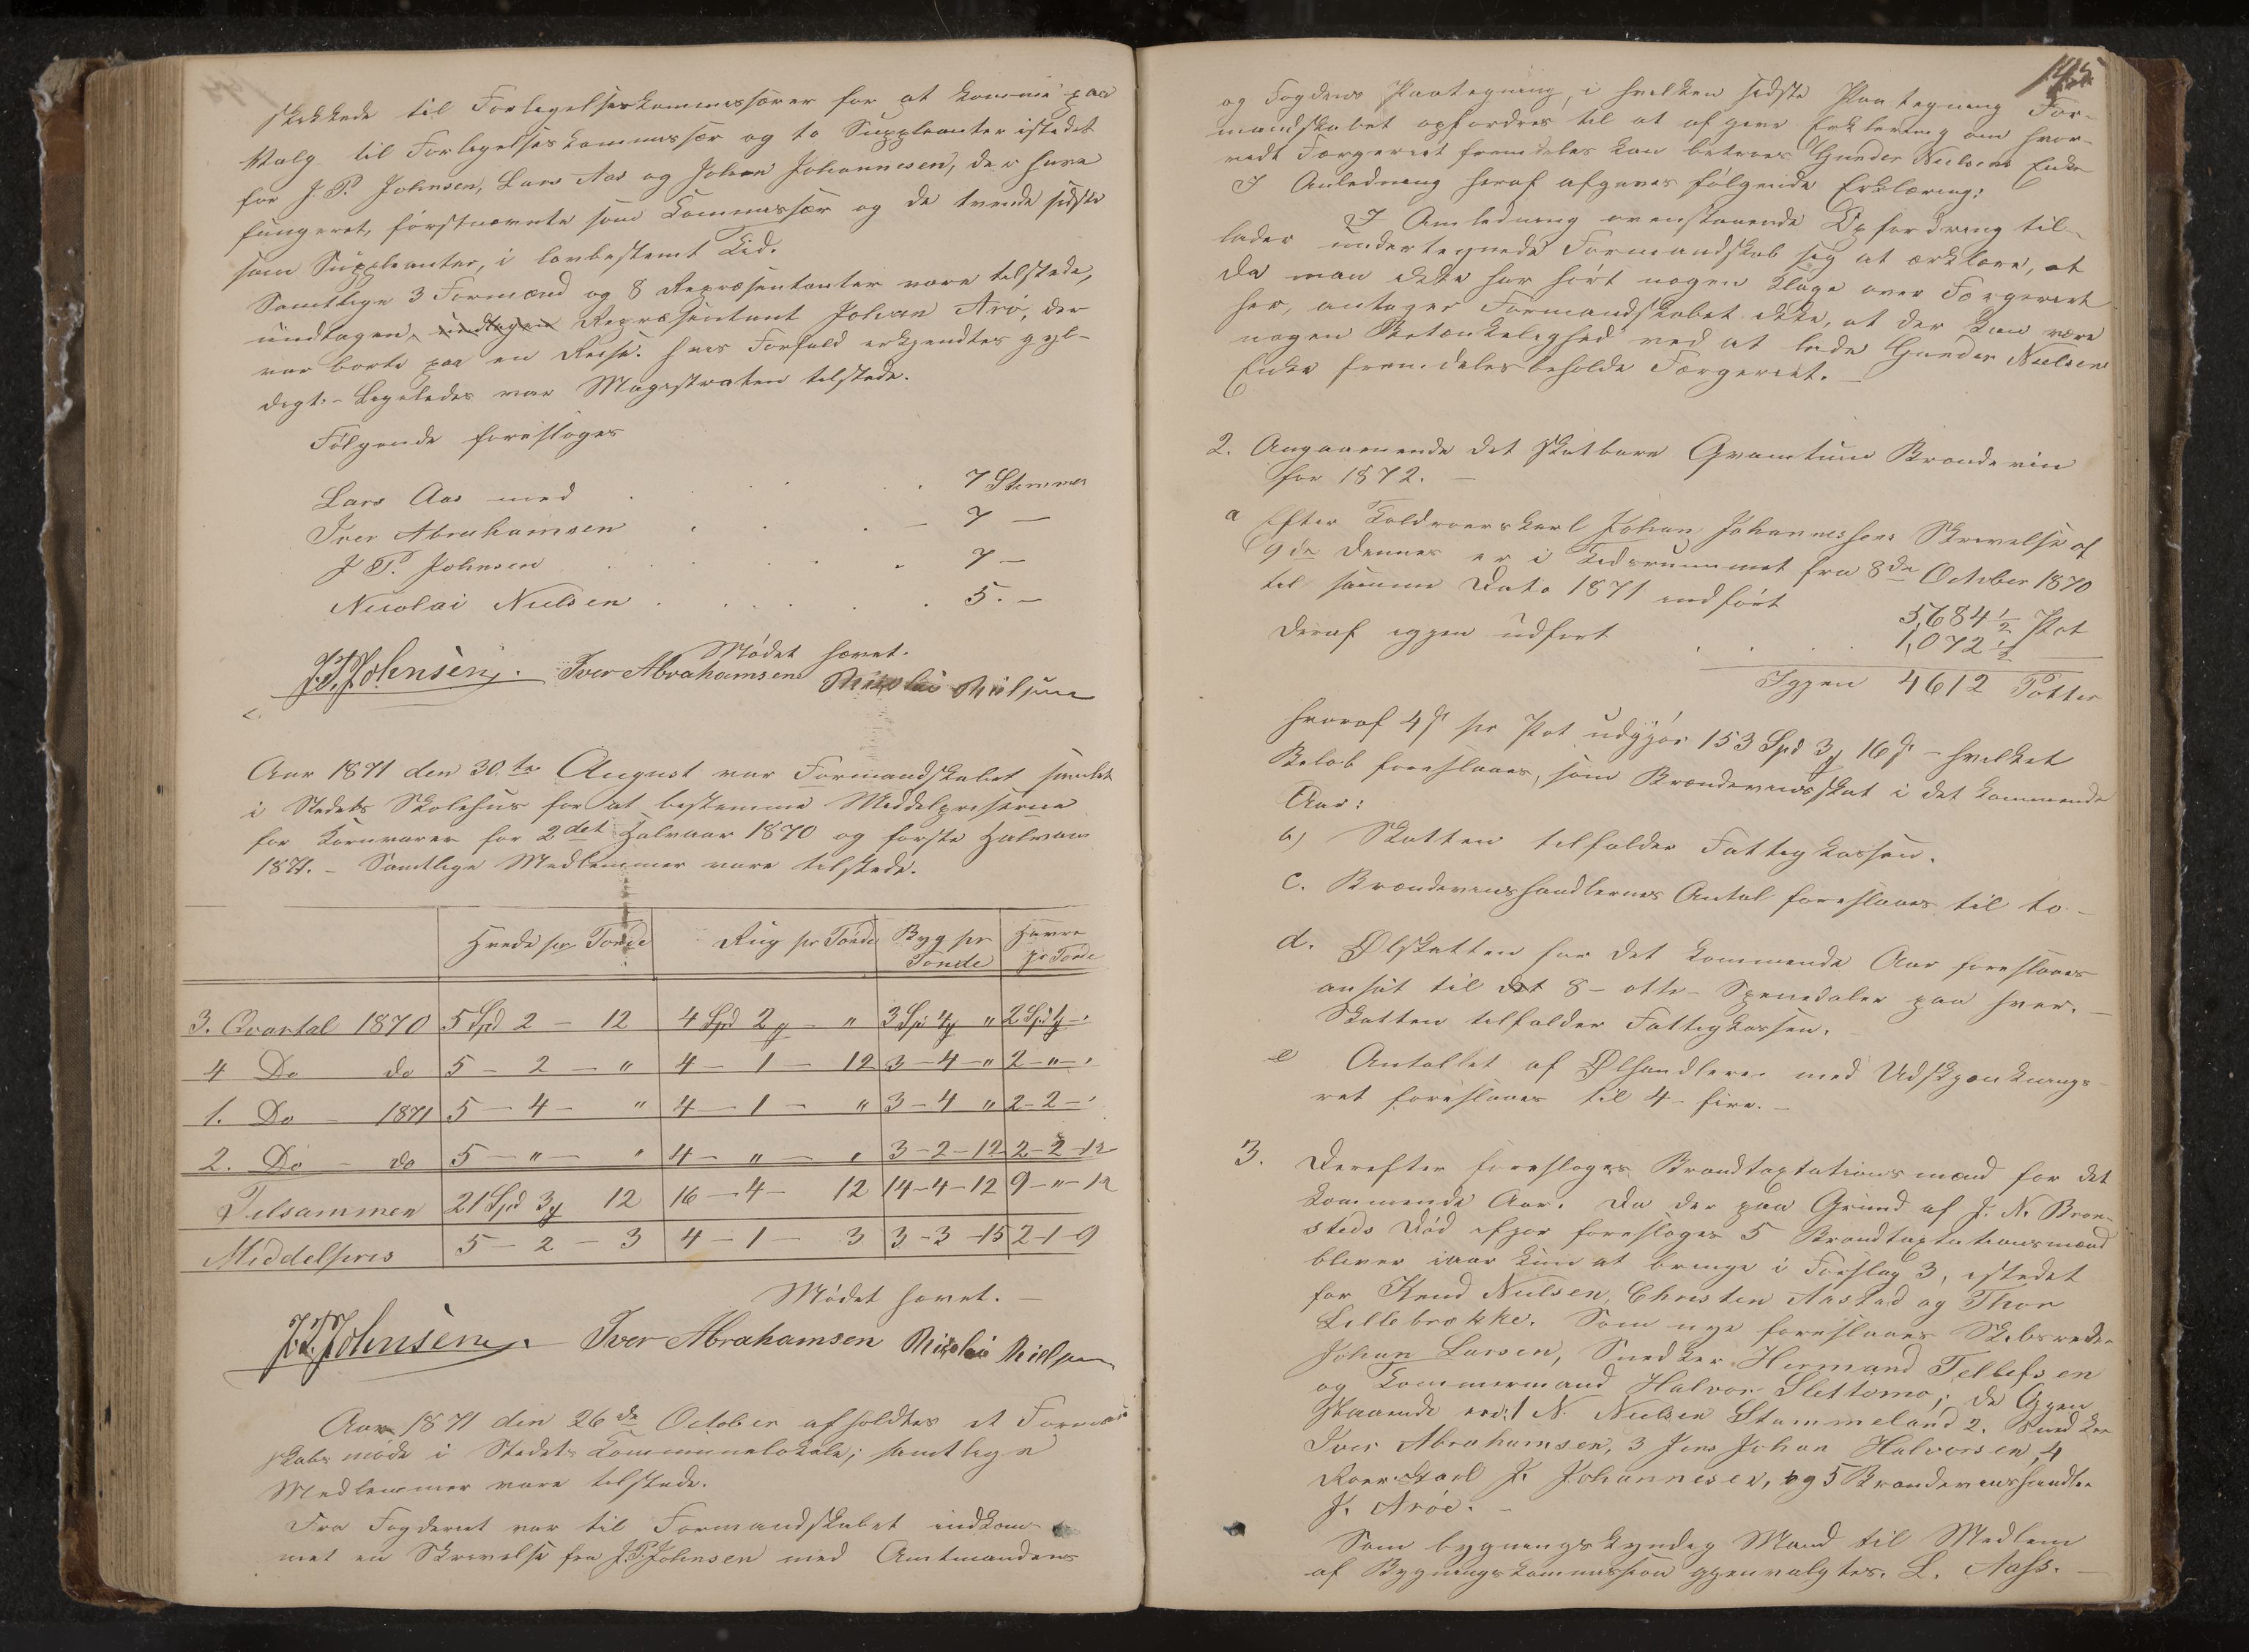 skikkede til Forligelseskommissærer for at komme paa
Valg til Forligelseskommissær og to Suppleanter istedet
for J. P. Johnsen, Lars Aas og Johan Johannesen, der have
fungeret, førstnævnte som Kommissær og de tvende sidste
som Suppleanter, i lovbestemt Tid.
Samtlige 3 Formænd og 8 Repræsentanter vare tilstede,
undtagen, undtagen Repræsentant Johan Arö, der
var borte paa en Reise. hvis Forfald erkjendtes gyl-
digt. - Ligeledes var Magistraten tilstede.
Følgende foresloges
Lars Aas med . . . 7 Stemmer
Iver Abrahamsen . . . - 7 -
J P. Johnsen . . . 7 -
Nicolai Nielsen . . . . . 5. -
Mødet hævet.
J. P. Johnsen. Iver Abrahamsen Nikolai Nielsen
Aar 1871 den 30.te August var Formandskabet samlet
i Stedets Skolehus for at bestemme Middelpriserne
for Kornvarer for 2det Halvaar 1870 og første Halvaar
1871. - Samtlige Medlemmer vare tilstede.
Hvede pr Tønde Rug pr Tønde Byg pr Tønde Havre pr Tønde
3. Qvartal 1870 5 Spd 2 - 12 4 Spd 2 - " 3 Spd 4 " 2 Spd
4 Do do 5 - 2 - " 4 - 1 - 12 3 - 4 - " 2 - " - "
1. Do - 1871 5 - 4 - " 4 - 1 - " 3 - 4 " 2 - 2 - "
2. Do - do 5 - " - " 4 - " - " 3 - 2 - 12 2 - 2 - 12
Tilsammen 21 Spd 3 12 16 - 4 - 12 14 - 4 - 12 9 - " - 12
Middelpris 5 - 2 - 3 4 - 1 - 3 3 - 3 - 15 2 - 1 - 9
Mødet hævet. -
J. P. Johnsen. Iver Abrahamsen Nikolai Nielsen
Aar 1871 den 26de October afholdtes et Formand
skabsmøde i Stedets Kommunelokale; samtlige
Medlemmer vare tilstede.
Fra Fogderiet var til Formandskabet indkom-
met en Skrivelse fra J. P. Johnsen med Amtmandens
145
og Fogdens Paategning, i hvilken sidste Paategning For-
mandskabet opfordres til at afgive Erklæring om hvor-
vidt Færgeriet fremdeles kan betroes Gunder Nielsens Enke
I Anledning heraf afgaves følgende Erklæring:
I Anledning ovenstaaende Opfordring til-
lader undertegnede Formandskab sig at erklære, at
da man ikke har hørt nogen Klage over Færgeriet
her, antager Formandskabet ikke, at der kan være
nogen Betænkelighed ved at lade Gunder Nielsens
Enke fremdeles beholde Færgeriet. -
2. Angaaende det skatbare Qvantum Brændeviin
for 1872. -
a Efter Toldroerskarl Johan Johannessens Skrivelse af
9de dennes er i Tidsrummet fra 8de October 1870
til samme Dato 1871 indført 5,684 1/2 Pot
deraf igjen udført . . . . 1,072 1/2
Igjen 4612 Potter
hvoraf 4 ß pr Pot udgjør 153 Spd 3 16 ß - hvilket
Beløb foreslaaes, som Brændeviinsskat i det kommende
Aar:
b) Skatten tilfalder Fattigkassen.
c. Brændeviinshandlernes Antal foreslaaes til to -
d. Ølskatten for det kommende Aar foreslaaes
ansat til det 8 - otte - Speciedaler paa hver. -
Skatten tilfalder Fattigkassen.
e Antallet af Ølhandlere med Udskjænknings-
ret foreslaaes til 4 - fire. -
3. Derefter foresloges Brandtaxtationsmænd for det
kommende Aar. Da der paa Grund af J. N. Bron-
steds Død ifjor foresloges 5 Brandtaxtationsmænd
bliver iaar kun at bringe i Forslag 3, istedet
for Knud Nielsen, Christen Aastad og Thor
Lillebrække. Som nye foreslaaes Skibsreder
Johan Larsen, Snedker Hermand Tellefsen
og Tømmermand Halvor Slettomo; de Igjen
staaende ere: 1 N. Nielsen Stummeland 2. Snedker
Iver Abrahamsen, 3 Jens Johan Halvorsen, 4
Roerskarl J. Johannesen, og 5 Brændeviinshandler
J. Aröe. -
Som bygningskyndig Mand til Medlem
af Bygningskommission gjenvalgtes. L. Aass. -